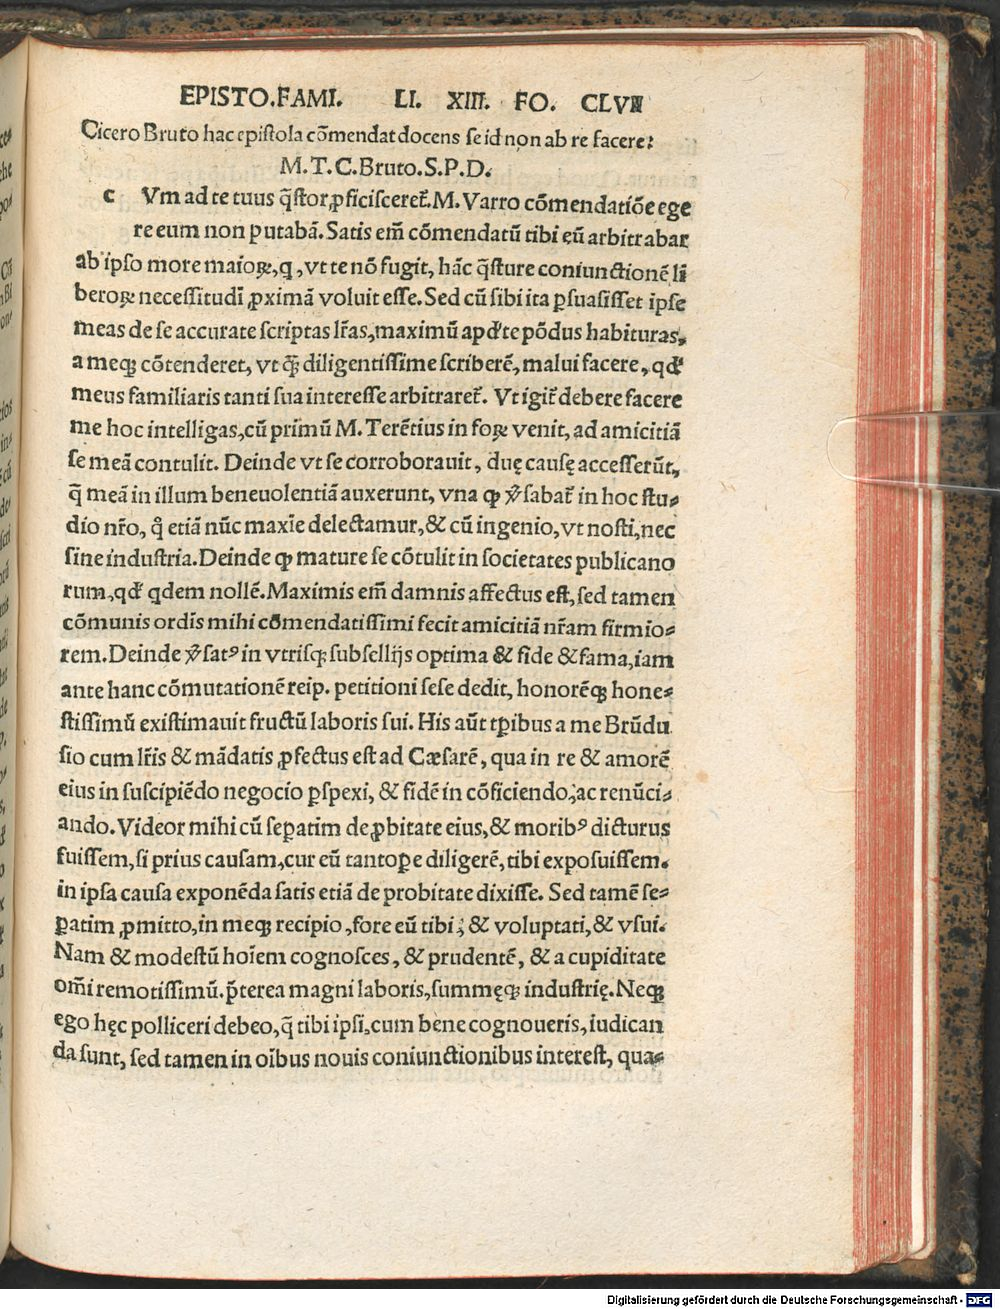 EPISTO.FAMI. LI. XIII. FO. CLVII
Cicero Bruto hac epistola cõmendat docens se id non ab re facere:
M.T.C.Bruto.S.P.D.
c Vm ad te tuus q̃stor ꝓficisceret̃.M. Varro cõmendatiõe ege
re eum non putabã. Satis em̃ cõmendatũ tibi eũ arbitrabar
ab ipso more maioꝝ, q, vt te nõ fugit, hãc q̃sture coniunctionẽ li
beroꝝ necessitudĩ ꝓximã voluit esse. Sed cũ sibi ita ꝑsuasisset ipse
meas de se accurate scriptas lr̃as, maximũ apď te põdus habituras,
a meqꝫ cõtenderet, vt q̃ꝫ diligentissime scriberẽ, malui facere, qď
meus familiaris tanti sua interesse arbitraret̃. Vt igit̃ debere facere
me hoc intelligas, cũ primũ M. Terẽtius in foꝝ venit, ad amicitiã
se meã contulit. Deinde vt se corroborauit, duę causę accesserũt,
q̃ meã in illum beneuolentiã auxerunt, vna ꝙ ꝟsabat̃ in hoc stu-
dio nr̃o, q̊ etiã nũc maxĩe delectamur, & cũ ingenio, vt nosti, nec
sine industria. Deinde ꝙ mature se cõtulit in societates publicano
rum, qď qdem nollẽ. Maximis em̃ damnis affectus est, sed tamen
cõmunis ordĩs mihi cõmendatissimi fecit amicitiã nr̃am firmio-
rem. Deinde ꝟsatꝰ in vtrisqꝫ subsellijs optima & fide & fama, iam
ante hanc cõmutationẽ reip. petitioni sese dedit, honorẽqꝫ hone-
stissimũ existimauit fructũ laboris sui. His aũt tꝑibus a me Brũdu
sio cum lr̃is & mãdatis ꝓfectus est ad Cæsarẽ, qua in re & amorẽ
eius in suscipiẽdo negocio ꝑspexi, & fidẽ in cõficiendo, ac renũci-
ando. Videor mihi cũ seꝑatim de ꝓbitate eius, & moribꝰ dicturus
fuissem, si prius causam, cur eũ tantoꝑe diligerẽ, tibi exposuissem.
in ipsa causa exponẽda satis etiã de probitate dixisse. Sed tamẽ se-
ꝑatim ꝓmitto, in meqꝫ recipio, fore eũ tibi, & voluptati, & vsui.
Nam & modestũ hoĩem cognosces, & prudentẽ, & a cupiditate
om̃i remotissimũ. p̃terea magni laboris, summęqꝫ industrię. Neqꝫ
ego hęc polliceri debeo, q̃ tibi ipsi, cum bene cognoueris, iudican
da sunt, sed tamen in oĩbus nouis coniunctionibus interest, qua-
Digitalisierung gefördert durch die Deutsche Forschungsgemeinschaft - DFG